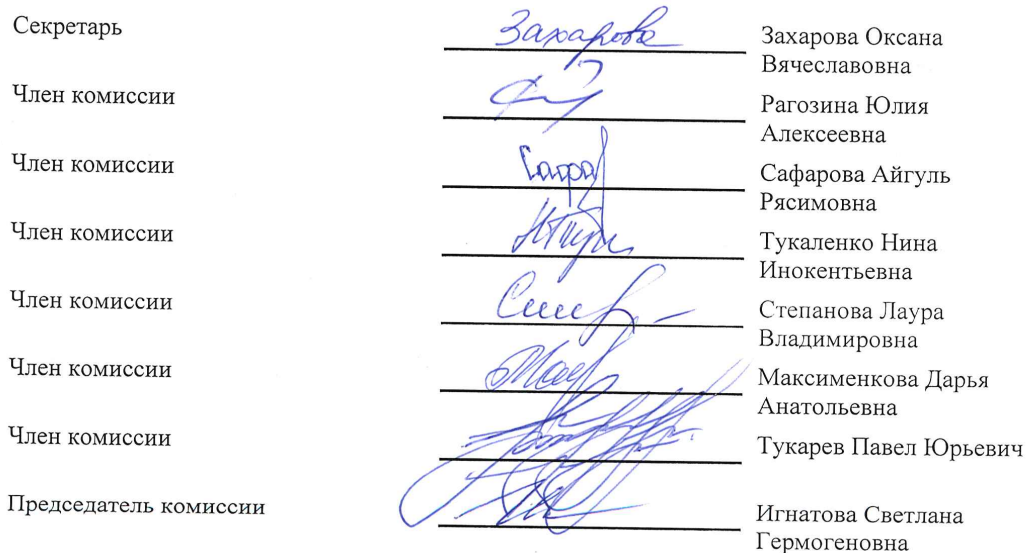 Секретарь Захарова Захарова Оксана
Вячеславовна
Член комиссии Рагозина Юлия
Алексеевна
Член комиссии Сафарова Айгуль
Рясимовна
Член комиссии Тукаленко Нина
Инокентьевна
Член комиссии Степанова Лаура
Владимировна
Член комиссии Максименкова Дарья
Анатольевна
Член комиссии Тукарев Павел Юрьевич
Председатель комиссии Игнатова Светлана
Гермогеновна